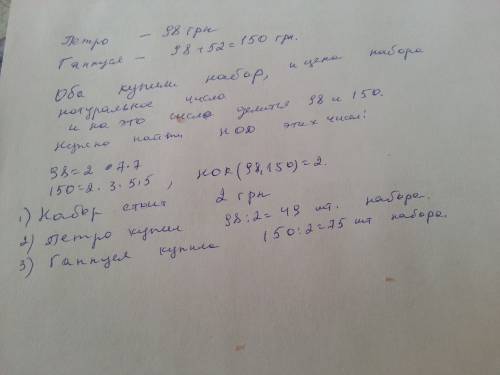 Петро — 98 грн
Ганнуся — 98+52=150 грн.
Оба купили набор, и цена набора
натуральное число
и на это число делится 98 и 150.
Нужно найти НОД этих чисел!
98=2·7·7
150=2·3·5·5, НОК(98,150)=2.
1) Набор стоит 2 грн
2) Петро купил 98:2=49 шт. набора.
3) Ганнуся купила 150:2=75 шт набора.